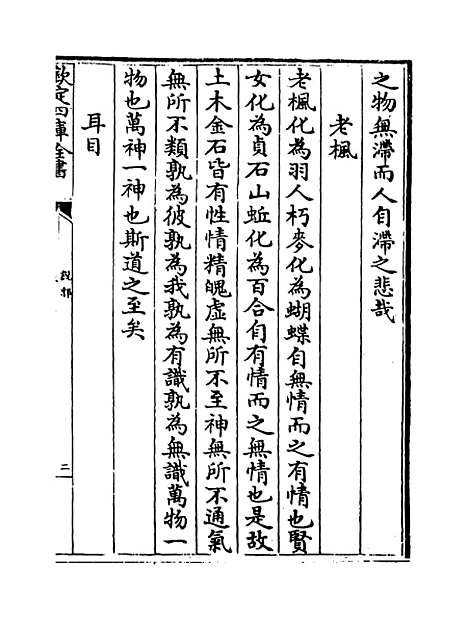 之物無滯而人自滯之悲哉
老楓
老楓化為羽人朽麥化為蝴蝶自無情而之有情也賢
女化為貞石山蚯化為百合自有情而之無情也是故
土木金石皆有性情精魄虛無所不至神無所不通氣
無所不類孰為彼孰為我孰為有識孰為無識萬物一
物也萬神一神也斯道之至矣
耳目
欽定四庫全書
說郛
二